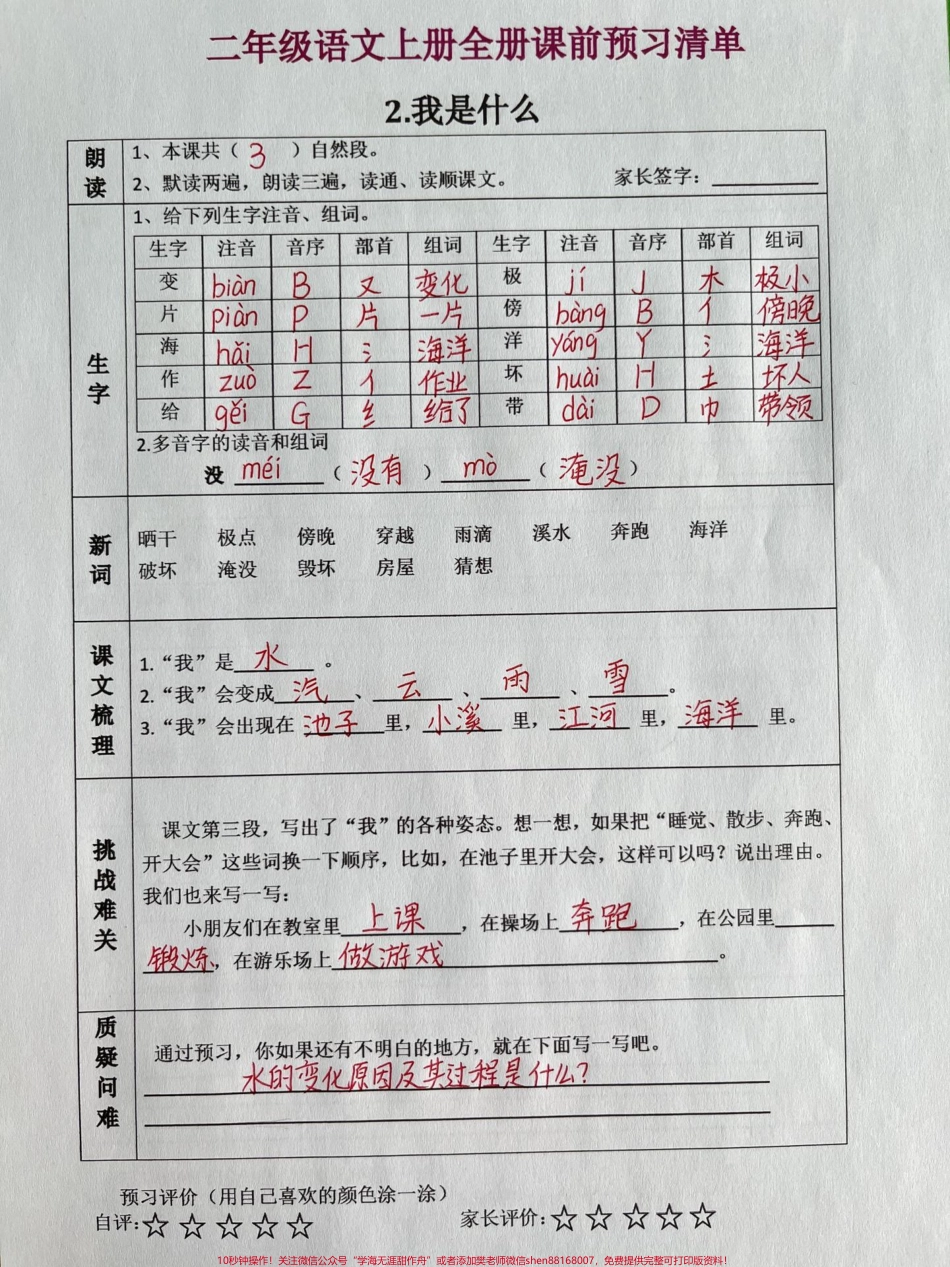 二年级语文上册全册课前预习清单
2.我是什么
朗读
1、本课共（ 3 ）自然段。
2、默读两遍，朗读三遍，读通、读顺课文。 家长签字：
生字
1、给下列生字注音、组词。
生字 注音 音序 部首 组词 生字 注音 音序 部首 组词
变 biàn B 又 变化 极 jí J 木 极小
片 piàn P 片 一片 傍 bàng B 亻 傍晚
海 hǎi H 氵 海洋 洋 yáng Y 氵 海洋
作 zuò Z 亻 作业 坏 huài H 土 坏人
给 gěi G 纟 给了 带 dài D 巾 带领
2.多音字的读音和组词
没 méi（ 没有 ） mò（ 淹没）
新词
晒干 极点 傍晚 穿越 雨滴 溪水 奔跑 海洋
破坏 淹没 毁坏 房屋 猜想
课文梳理
1.“我”是 水 。
2.“我”会变成 汽 、 云 、 雨 、 雪 。
3.“我”会出现在 池子 里， 小溪 里， 江河 里， 海洋 里。
挑战难关
课文第三段，写出了“我”的各种姿态。想一想，如果把“睡觉、散步、奔跑、
开大会”这些词换一下顺序，比如，在池子里开大会，这样可以吗？说出理由。
我们也来写一写：
小朋友们在教室里 上课 ，在操场上 奔跑 ，在公园里
锻炼，在游乐场上 做游戏 。
质疑问难
通过预习，你如果还有不明白的地方，就在下面写一写吧。
水的变化原因及其过程是什么？
预习评价（用自己喜欢的颜色涂一涂）
自评：☆ ☆ ☆ ☆ ☆ 家长评价：☆ ☆ ☆ ☆ ☆
10秒钟操作！关注微信公众号“学海无涯甜作舟”或者添加樊老师微信shen88168007，免费提供完整可打印版资料！